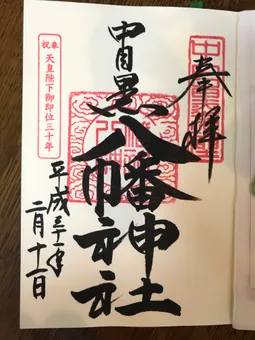 奉拝
中目黒
八幡神社
奉祝
天皇陛下御即位三十年
平成三十一年
二月十一日